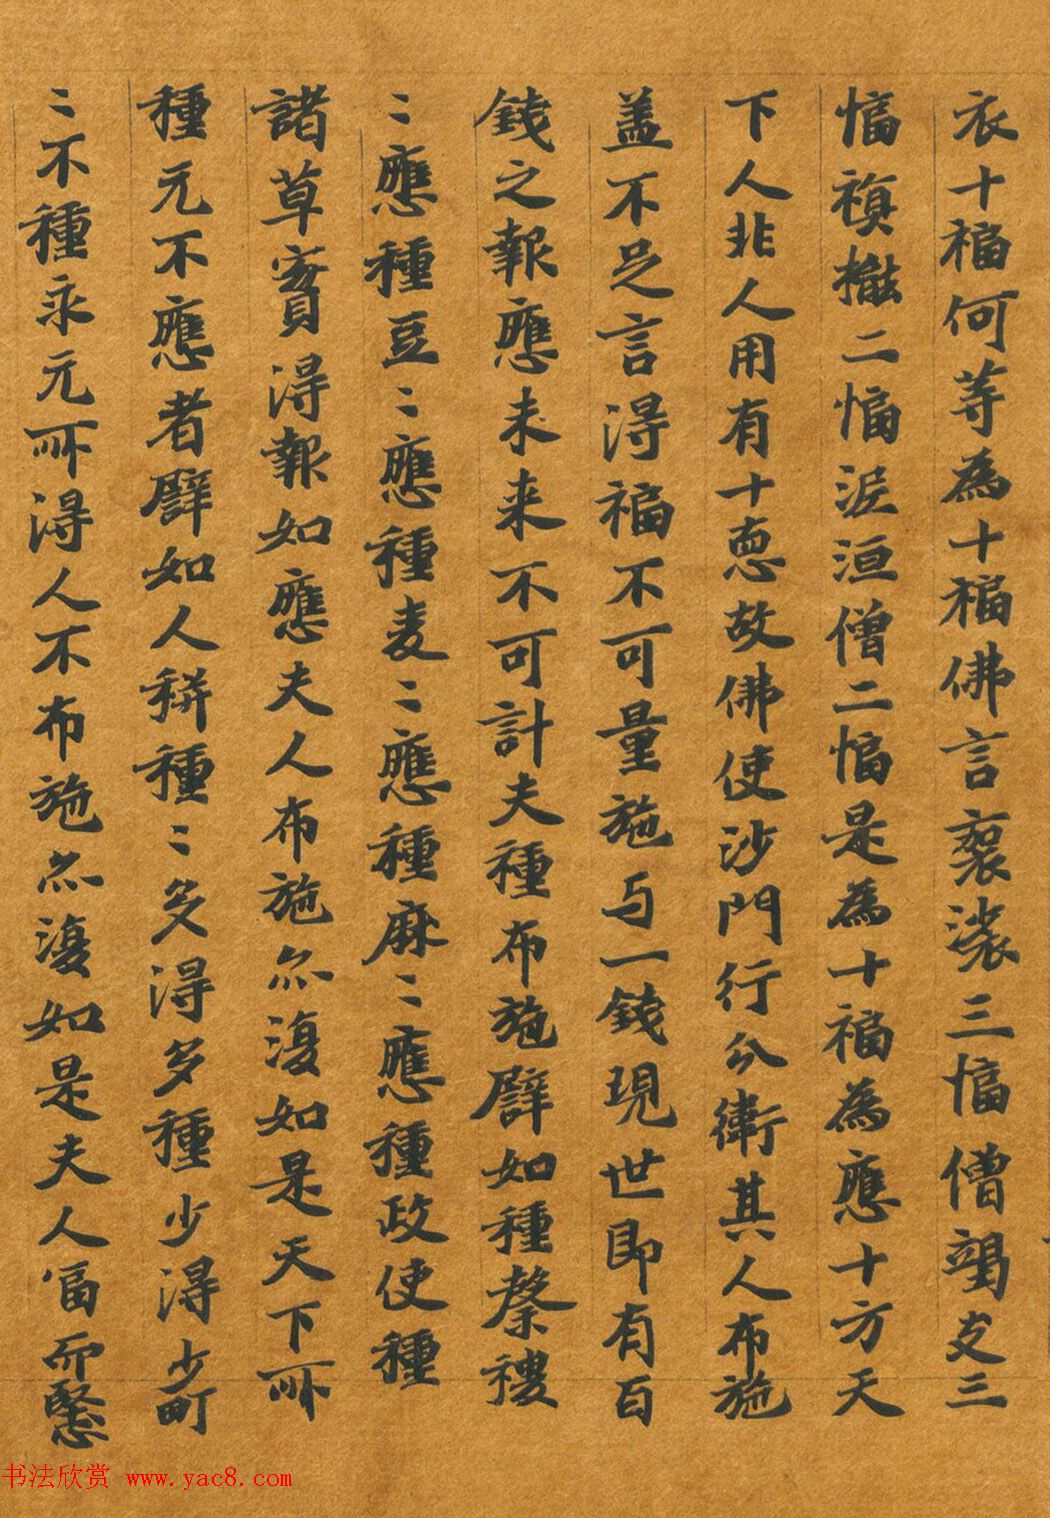 衣十福何等為十福佛言袈裟三幅僧竭支三
幅𧞤二幅泥洹僧二幅是為十福為應十方天
下人非人用有十悪故佛使沙門行分衛其人布施
盖不足言得福不可量施与一錢現世即有百
錢之報應未来不可計夫種布施譬如種𥠖穬
〻應種豆〻應種麦〻應種麻〻應種政使種
諸草實得報如應夫人布施亦復如是天下所
種元不應者譬如人耕種〻多得多種少得少町
〻不種永元所得人不布施亦復如是夫人富而慳
书法欣赏 www.yac8.com